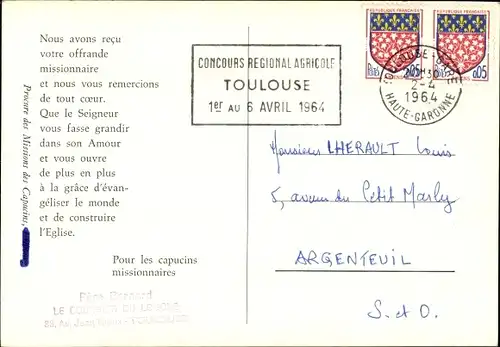 Nous avons reçu
votre offrande
missionnaire
et nous vous remercions
de tout cœur.
Que le Seigneur
vous fasse grandir
dans son Amour
et vous ouvre
de plus en plus
à la grâce d'évan-
géliser le monde
et de construire
l'Eglise.
Pour les capucins
missionnaires
Procure des Missions des Capucins,
CONCOURS REGIONAL AGRICOLE
TOULOUSE
1er AU 6 AVRIL 1964
REPUBLIQUE FRANÇAISE
0,05
0,05
TOULOUSE
2-4
1964
HAUTE-GARONNE
Monsieur LHERAULT Louis
5, avenue du Petit Marly
ARGENTEUIL
S. et O.
LE